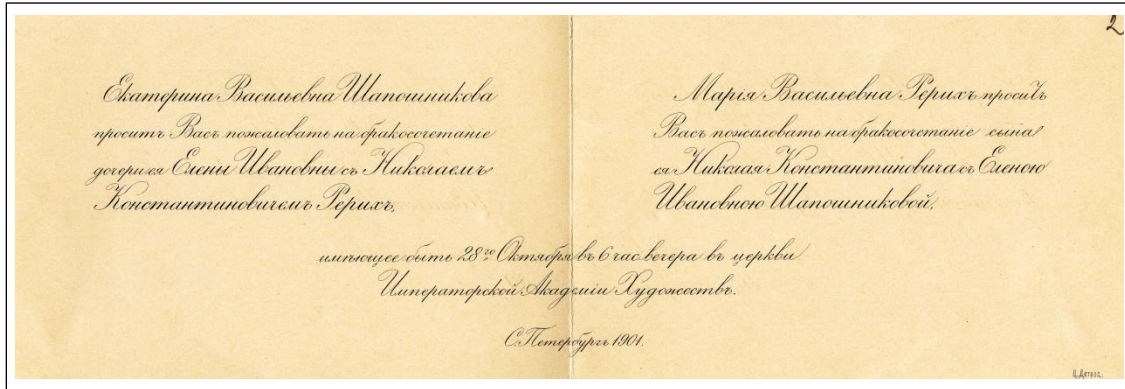 2
Екатерина Васильевна Шапошникова
проситъ Васъ пожаловать на бракосочетаніе
дочери ея Елены Ивановны съ Николаемъ
Константиновичемъ Рерихъ,
Марія Васильевна Рерихъ проситъ
Васъ пожаловать на бракосочетаніе сына
ея Николая Константиновича съ Еленою
Ивановною Шапошниковой,
имѣющее быть 28го Октября въ 6 час вечера въ церкви
Императорской Академіи Художествъ.
С.Петербургъ 1901.